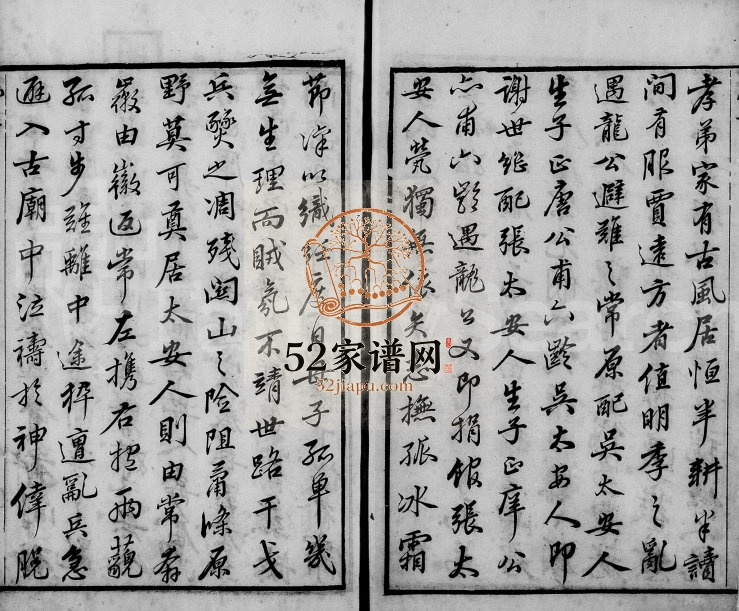 孝弟家有古風居恒半耕半讀
間有服賈遠方者值明季之亂
遇龍公避難之常原配吳太安人
生子正唐公甫六齡吳太安人即
謝世继配張太安人生子正庠公
亦甫六齡遇龍公又即捐館張太
安人煢獨無依矢志撫孤冰霜
節深以織紝度日母子孤單幾
無生理而賊氛不靖世路干戈
兵燹之凋残関山之险阻蕭條原
野莫可奠居太安人則由常
由徽返常左携右抱兩藐
孤寸步難離中途猝遭亂兵急
避入古廟中泣禱於神倖脱
52家谱网
52jiapu.com